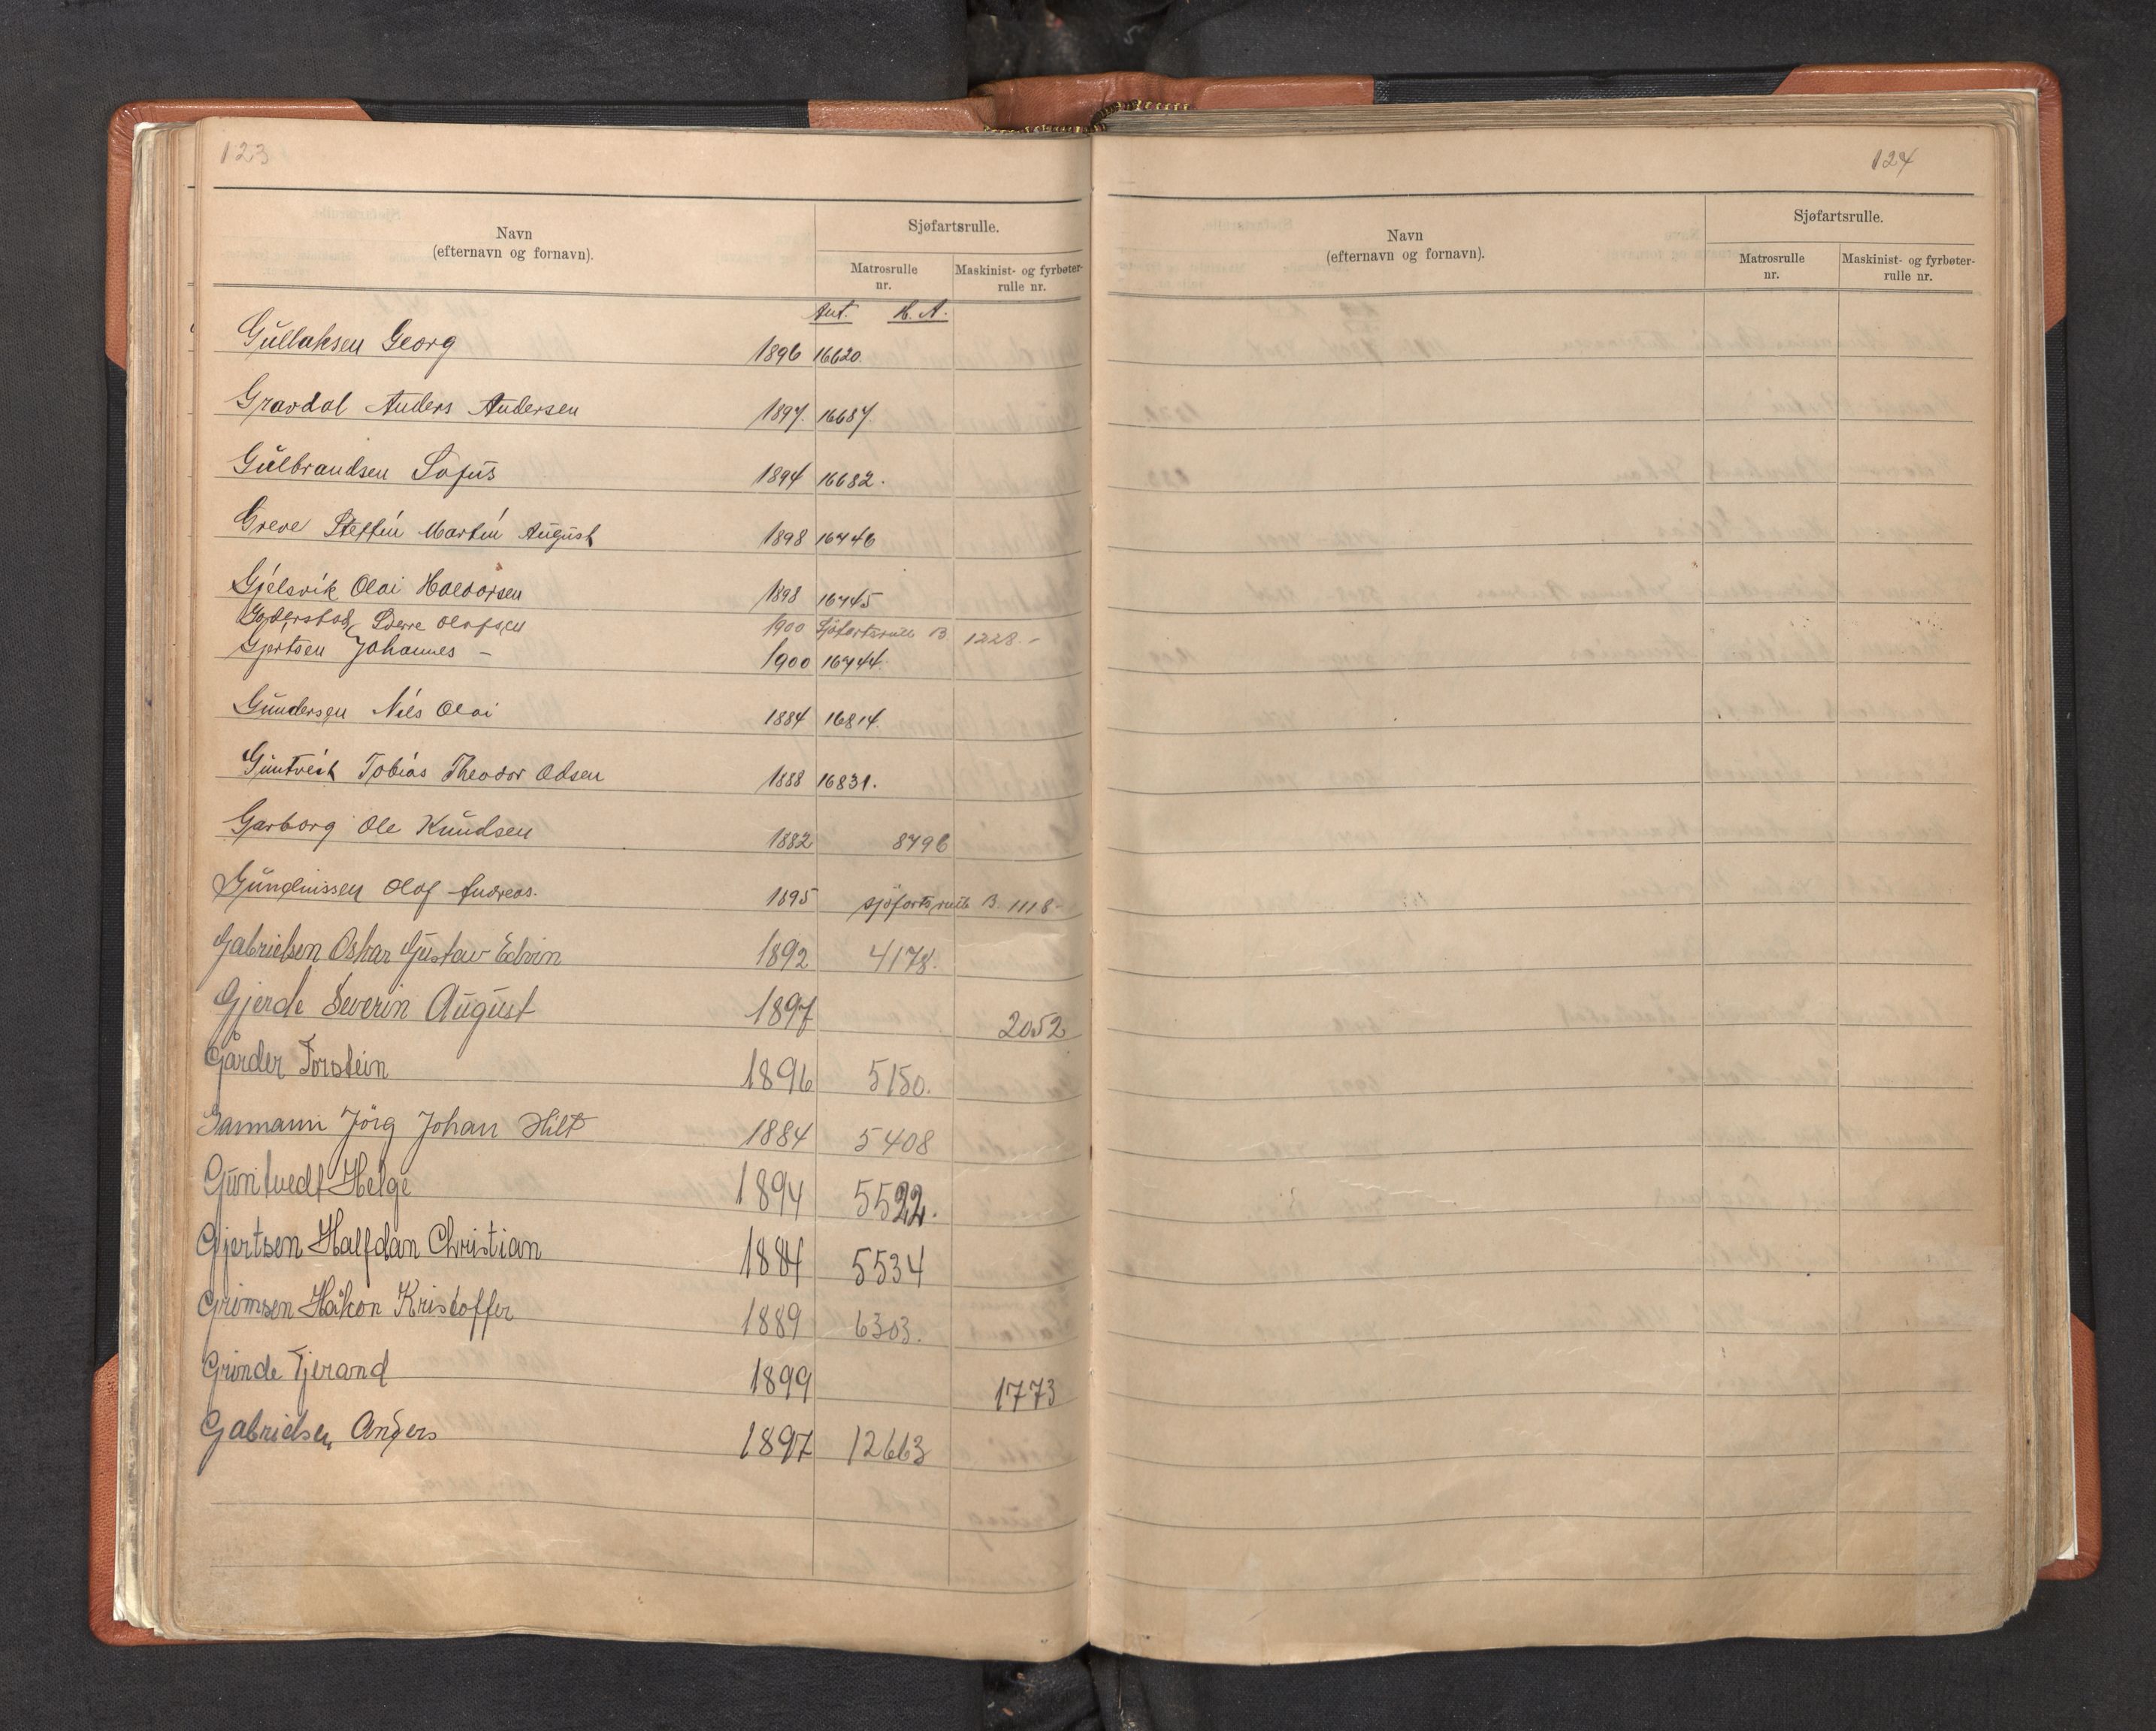 123
Navn
(efternavn og fornavn).
Sjøfartsrulle.
Matrosrulle
nr.
Maskinist- og fyrbøter-
rulle nr.
Aut. H. A.
Gullaksen Georg 1896 16620.
Gravdal Anders Andersen 1897. 16687.
Gulbrandsen Sofus 1894 16682.
Greve Steffen Martin August 1898 16746
Gjelsvik Olai Haldorsen 1898 16745
Olafsen 1900 Sjøfartsrulle B. 1228.-
Gjertsen Johannes - 1900 16744.
Gundersen Nils Olai 1884 16814.
Guntveit Tobias Theodor Odsen 1888 16831.
Garborg Ole Knudsen 1882 8796
Olaf Andreas. 1895 sjøfartsrulle B. 1118-
Gabrielsen Oskar Gustav Edvin 1892 4178.
Gjerde Severin August 1897 2052
Garder Torstein 1896 5150.
Garmann Jörg Johan Hilt 1884 5408
Guntvedt Helge 1894 5522.
Gjertsen Halfdan Christian 1884 5534
Grimsen Håkon Kristoffer 1889 6303.
Grinde Tjerand 1899 1773
Gabrielsen Anders 1897 12663
124
Navn
(efternavn og fornavn).
Sjøfartsrulle.
Matrosrulle
nr.
Maskinist- og fyrbøter-
rulle nr.